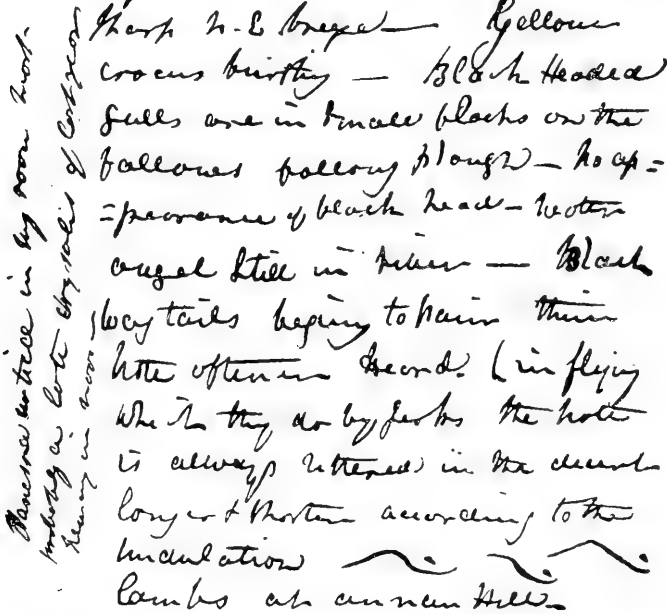 Sharp N.E breeze — Yellow
crocus bursting — Black Headed
Gulls are in small flocks on the
fallows following plough — No ap=
=pearance of black head —
still in river — Black
Wagtails begin to pair their
note often heard. (in flying
which they do by jerks the note
is always uttered in the descent
longer & shorter according to the
undulation
Lambs at Annan Hill —
Vanessa urticae in my room
probably a late chrysalis of last year